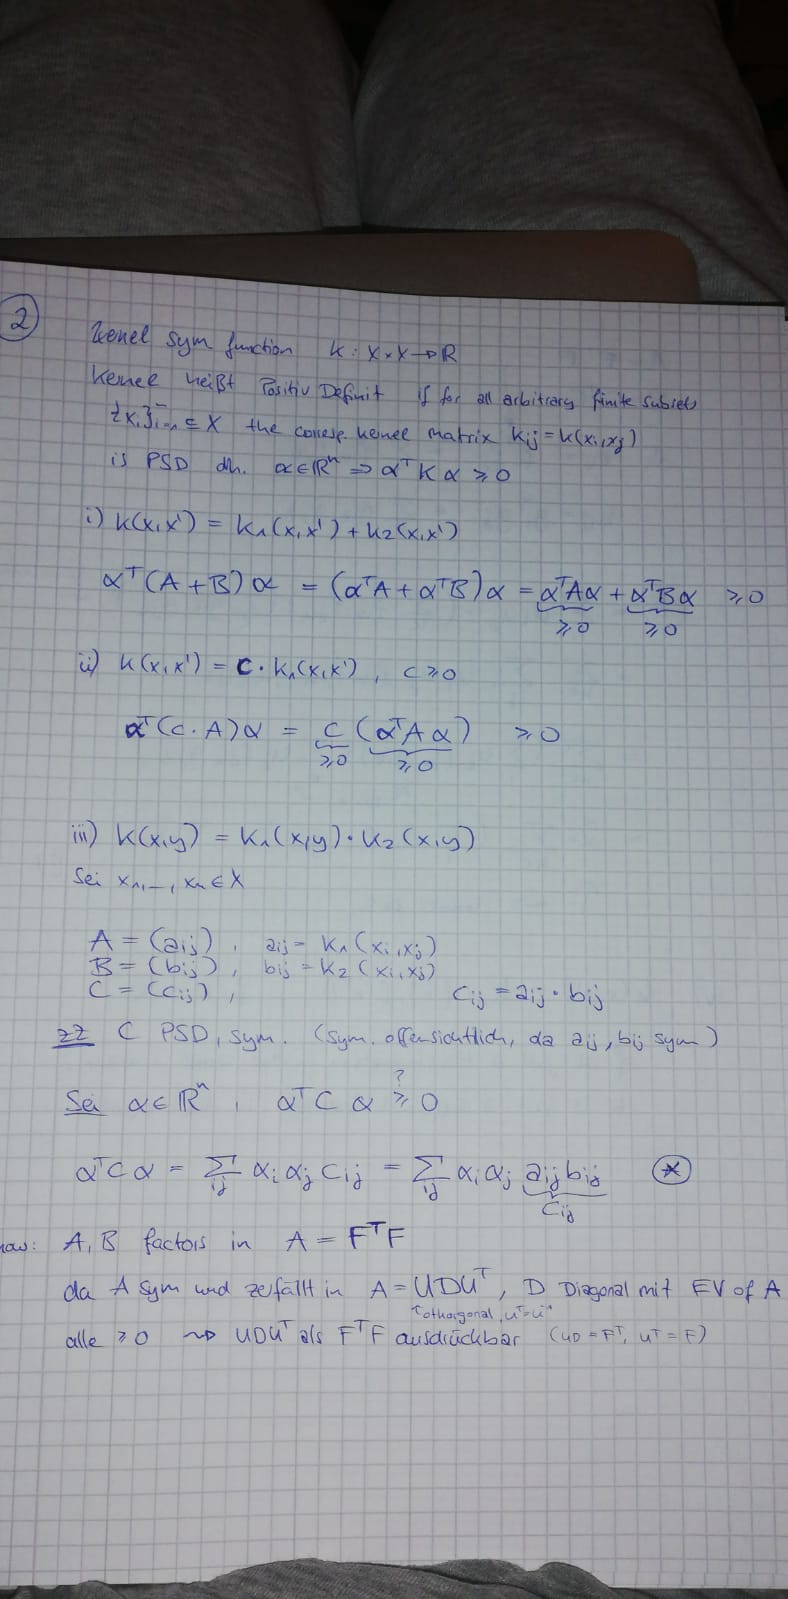 2
Kernel sym function k: X×X→ℝ
Kernel heißt Positiv Definit if for all arbitrary finite subsets
{xi}ⁿi=1 ⊆ X the corresp. kernel matrix Kij = k(xi,xj)
is PSD dh. α∈ℝⁿ ⇒ αᵀKα ≥ 0
i) k(x,x') = k1(x,x') + k2(x,x')
αᵀ(A+B)α = (αᵀA + αᵀB)α = αᵀAα + αᵀBα ≥ 0
≥0 ≥0
ii) k(x,x') = c · k1(x,x'), c ≥ 0
αᵀ(c·A)α = c (αᵀAα) ≥ 0
≥0 ≥0
iii) k(x,y) = k1(x,y) · k2(x,y)
Sei x1,_, xn ∈ X
A = (aij), aij = k1(xi,xj)
B = (bij), bij = k2(xi,xj)
C = (cij), cij = aij · bij
zz C PSD, sym. (sym. offensichtlich, da aij, bij sym)
?
Sei α∈ℝⁿ, αᵀCα ≥ 0
αᵀCα = Σij αi αj cij = Σij αi αj aij bij (*)
cij
now: A,B factors in A = FᵀF
da A sym und zerfällt in A = UDUᵀ, D Diagonal mit EV of A
↑othorgonal, uᵀ=u⁻¹
alle ≥ 0 ⇝ UDUᵀ als FᵀF ausdrückbar (UD = Fᵀ, Uᵀ = F)